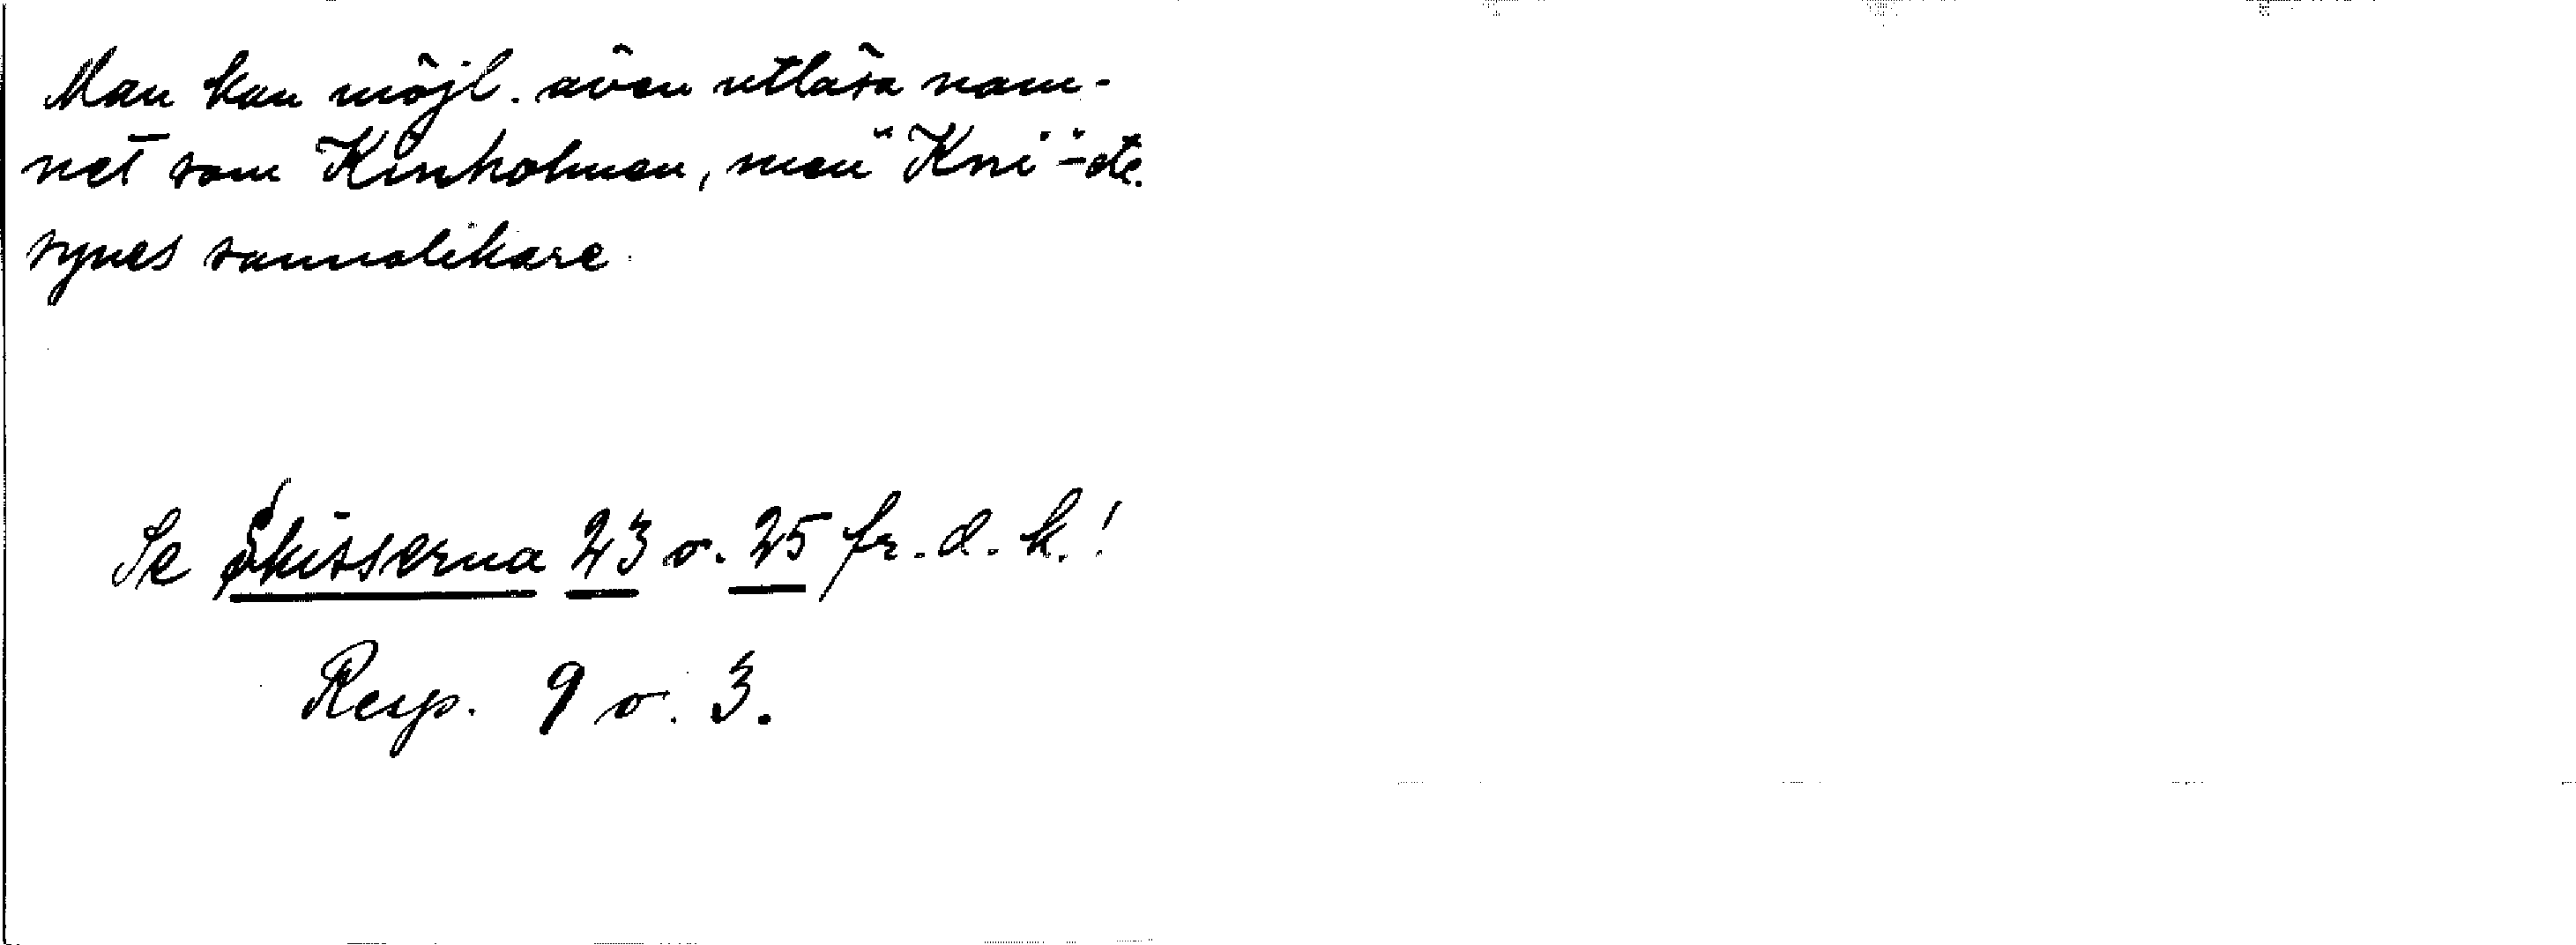 Man kan möjl. även utläsa nam-
net som Kinholmen, men "Kni"-etc.
synes sannolikare.
Se skisserna 23 o. 25 fr. d. k.!
Resp. 9 o. 3.